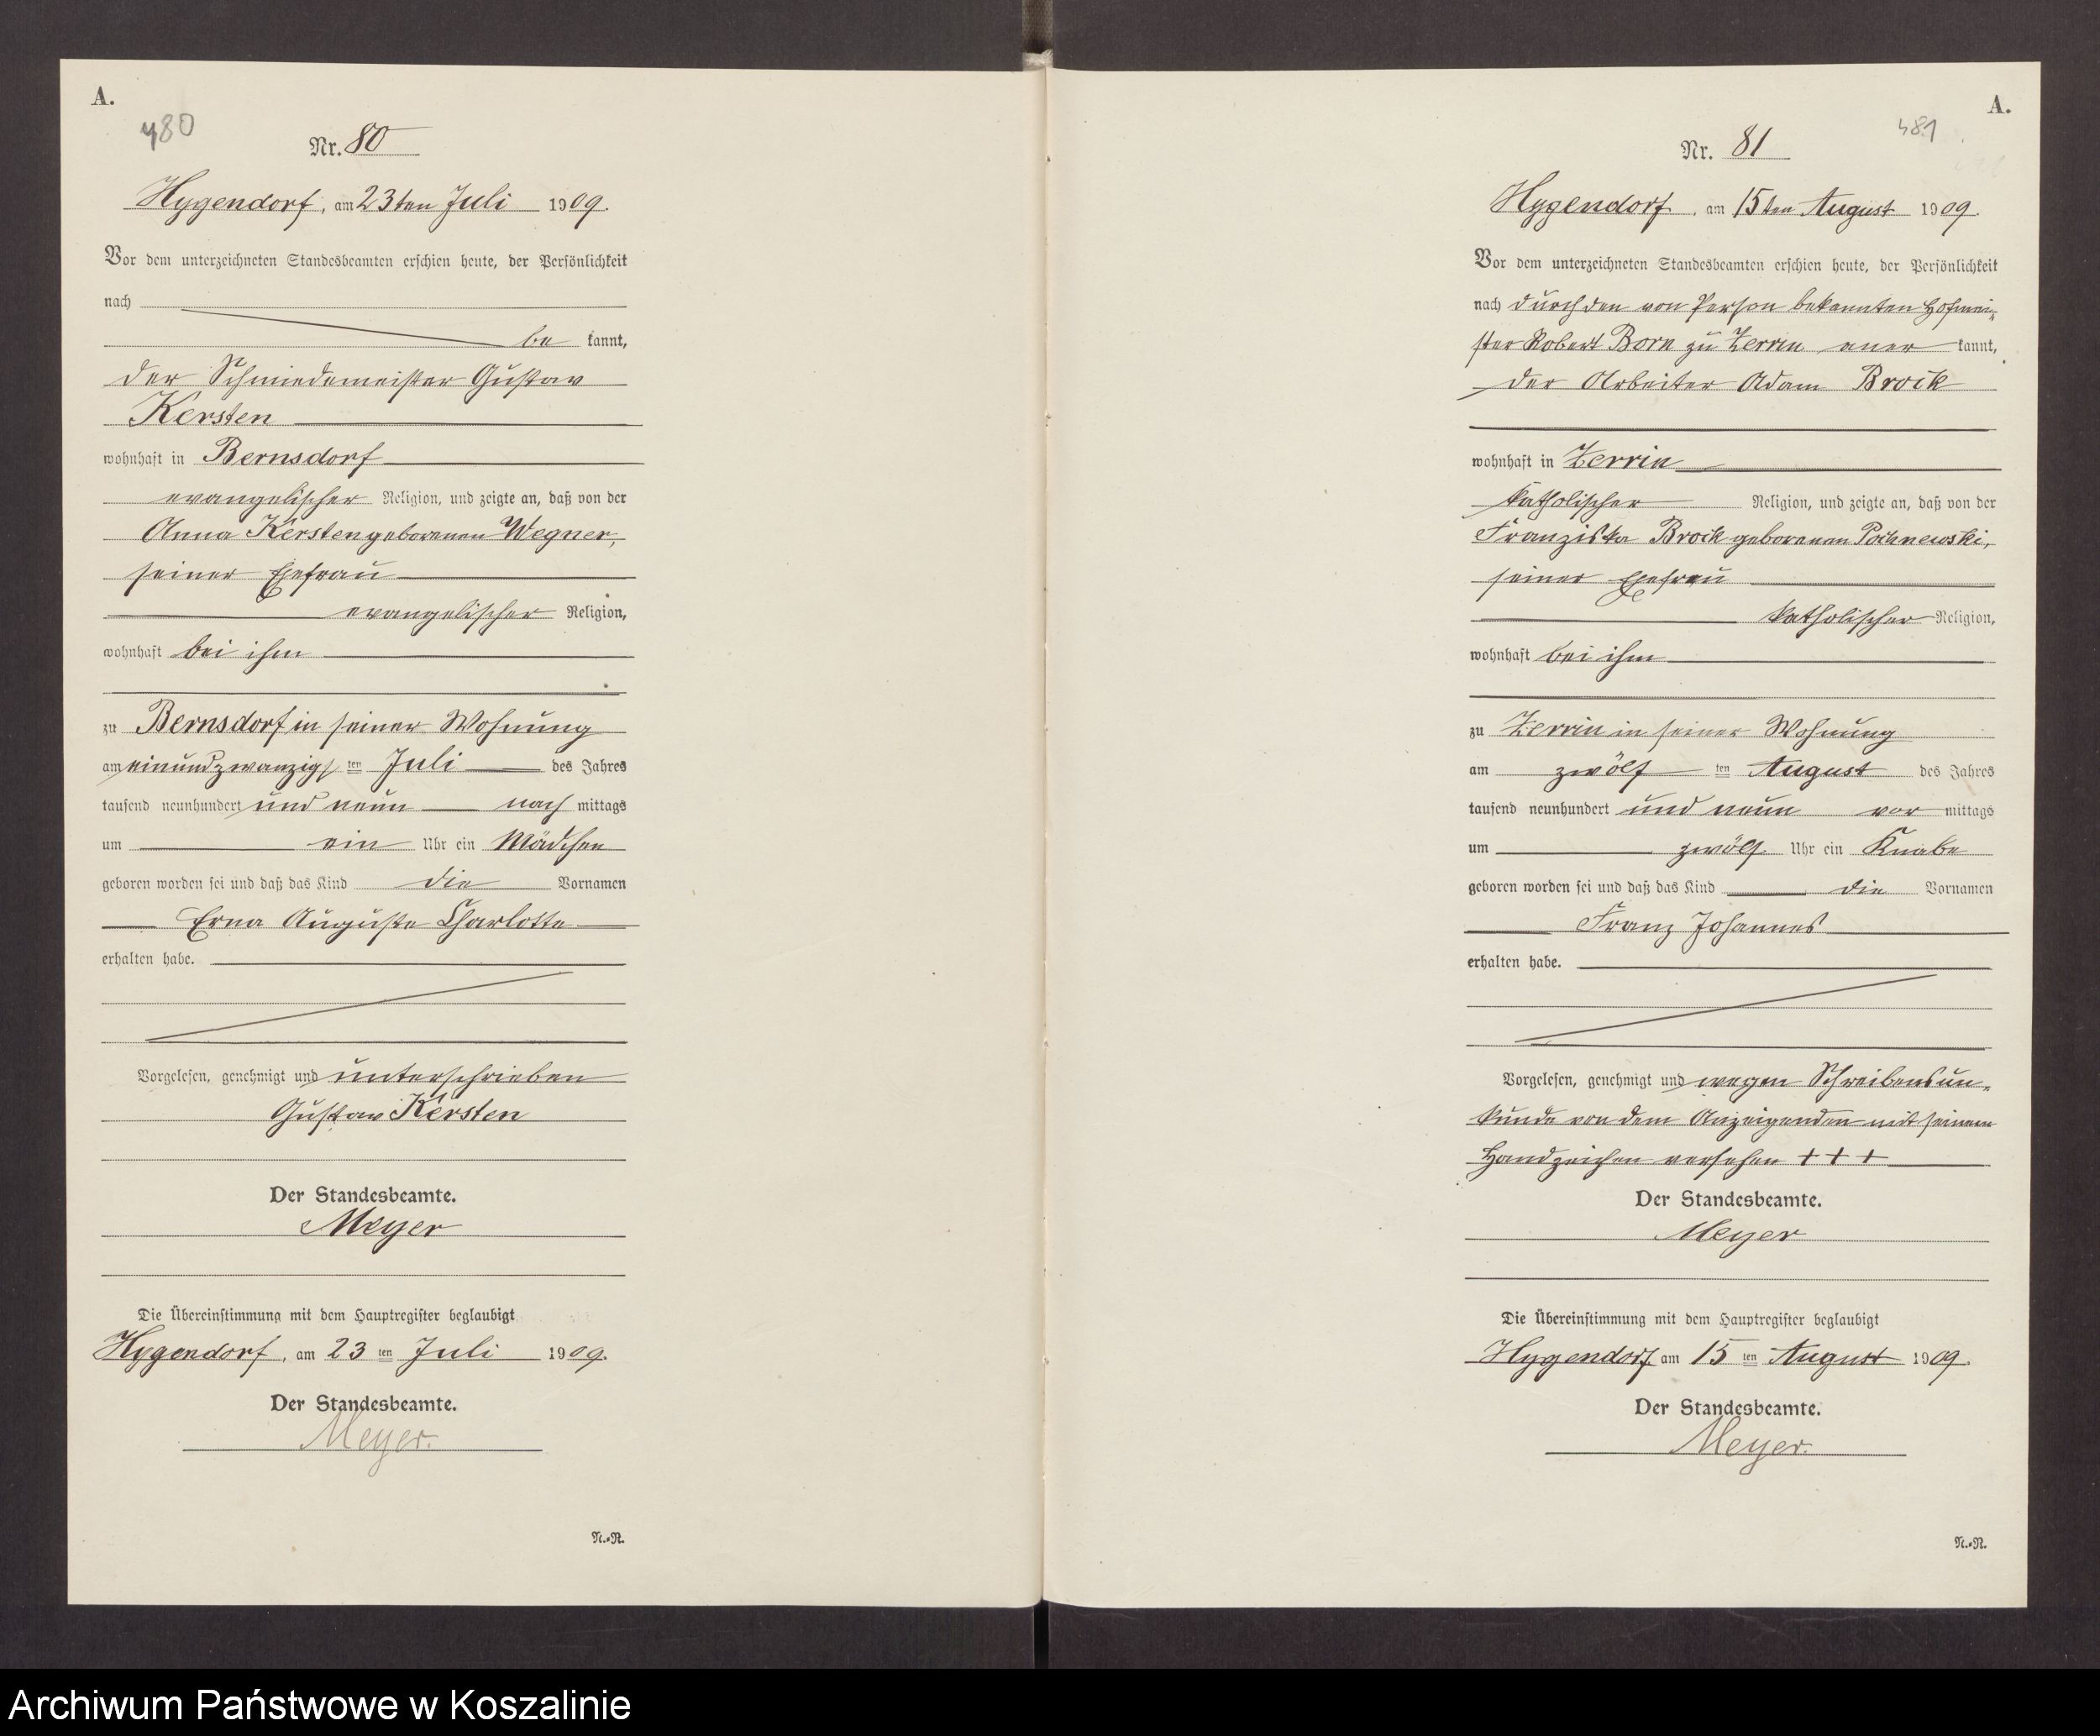 A.
480
Nr. 80
Hygendorf, am 23ten Juli 1909.
Vor dem unterzeichneten Standesbeamten erschien heute, der Persönlichkeit
nach
be kannt,
der Schmiedemeister Gustav
Kersten
wohnhaft in Bernsdorf
evangelischer Religion, und zeigte an, daß von der
Anna Kersten geborenen Wegner,
seiner Ehefrau
evangelischer Religion,
wohnhaft bei ihm
zu Bernsdorf in seiner Wohnung
am einundzwanzigsten Juli des Jahres
tausend neunhundert und neun nach mittags
um ein Uhr ein Mädchen
geboren worden sei und daß das Kind die Vornamen
Erna Auguste Charlotte
erhalten habe.
Vorgelesen, genehmigt und unterschrieben
Gustav Kersten
Der Standesbeamte.
Meyer
Die Übereinstimmung mit dem Hauptregister beglaubigt
Hygendorf, am 23 ten Juli 1909.
Der Standesbeamte.
Meyer.
N.-R.
A.
481
Nr. 81
Hygendorf, am 15ten August 1909.
Vor dem unterzeichneten Standesbeamten erschien heute, der Persönlichkeit
nach durch den von Person bekannten Hofmei-
ster Robert Born zu Zerrin aner kannt,
der Arbeiter Adam Brock
wohnhaft in Zerrin
katholischer Religion, und zeigte an, daß von der
Franziska Brock geborenen Pochnewski,
seiner Ehefrau
katholischer Religion,
wohnhaft bei ihm
zu Zerrin in seiner Wohnung
am zwölf ten August des Jahres
tausend neunhundert und neun vor mittags
um zwölf Uhr ein Knabe
geboren worden sei und daß das Kind die Vornamen
Franz Johannes
erhalten habe.
Vorgelesen, genehmigt und wegen Schreibensun-
kunde von dem Anzeigenden mit seinem
Handzeichen versehen + + +
Der Standesbeamte.
Meyer
Die Übereinstimmung mit dem Hauptregister beglaubigt
Hygendorf am 15 ten August 1909.
Der Standesbeamte.
Meyer.
N.-R.
Archiwum Państwowe w Koszalinie